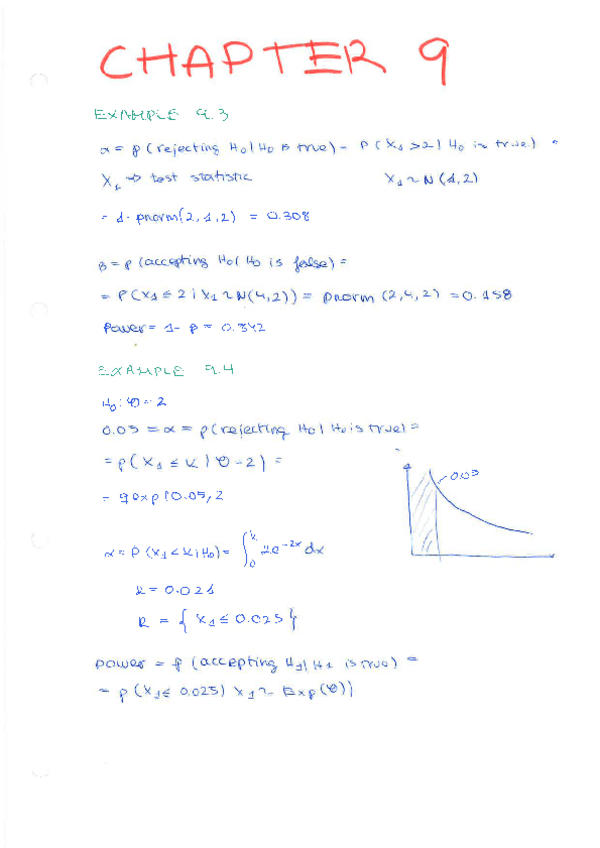 CHAPTER 9
EXAMPLE 9.3
α = p (rejecting H₀ | H₀ is true) = P (X₁ > 2 | H₀ is true) =
X₁ ⇒ test statistic X₁ ~ N (1,2)
= 1- pnorm(2,1,2) = 0.308
β = p (accepting H₀ | H₀ is false) =
= P (X₁ ≤ 2 | X₁ ~ N(4,2)) = pnorm (2,4,2) = 0.158
Power = 1- β = 0.842
EXAMPLE 9.4
H₀: θ = 2
0.05 = α = p (rejecting H₀ | H₀ is true) =
= p ( X₁ ≤ K | θ = 2 ) =
= qexp(0.05,2
0.05
α = P (X₁ < K | H₀) = ∫₀ᵏ 2e⁻²ˣ dx
K = 0.025
R = { X₁ ≤ 0.025 }
power = p (accepting H₁ | H₁ is true) =
= p (X₁ ≤ 0.025 | X₁ ~ Exp (θ))